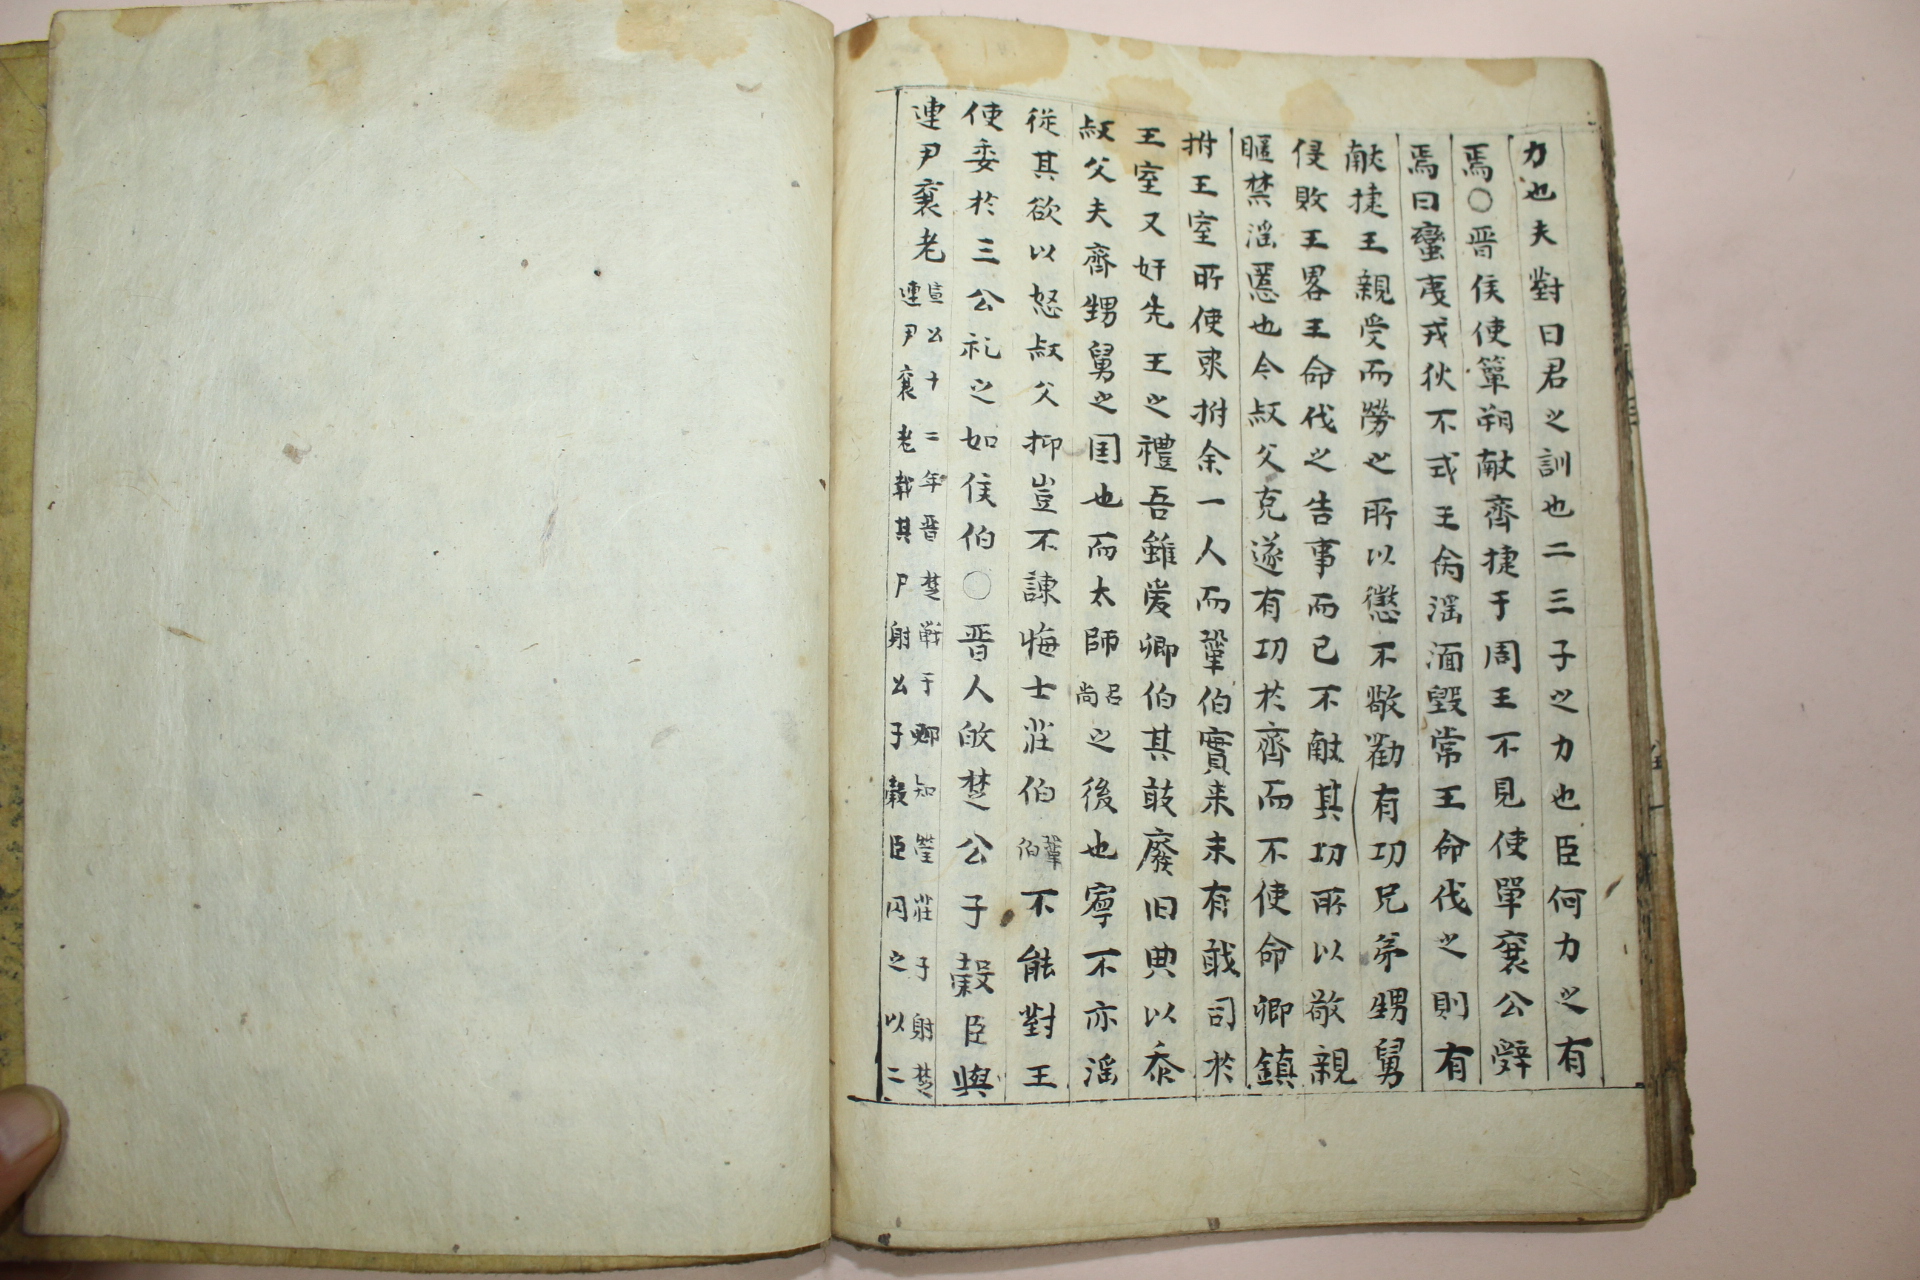 力也夫對曰君之訓也二三子之力也臣何力之有
焉○晋侯使鞏朔献齊捷于周王不見使單襄公辤
焉曰蠻夷戎狄不式王命淫湎毁常王命伐之則有
献捷王親受而勞之所以懲不敬勸有功兄弟甥舅
侵敗王畧王命伐之告事而已不献其功所以敬親
暱禁淫慝也今叔父克遂有功於齊而不使命卿鎮
拊王室所使來拊余一人而鞏伯實来未有戢司於
王室又奸先王之禮吾雖爱卿伯其敢廢旧典以忝
叔父夫齊甥舅之国也而太師尚呂之後也寧不亦淫
從其欲以怒叔父抑豈不諌悔士荘伯鞏伯不能對王
使委於三公礼之如侯伯○晋人皈楚公子穀臣與
連尹襄老宣公十二年晋楚戦于邲知罃荘子射楚
連尹襄老載其尸射公子穀臣囚之以二